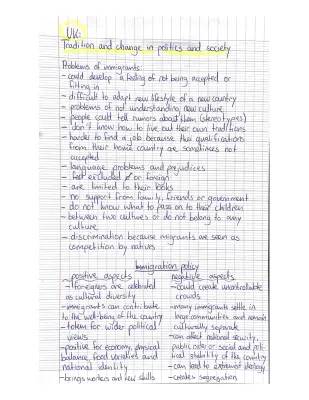 UK:
Tradition and change in politics and society
Problems of immigrants:
- could develop a feeling of not being accepted or
fitting in
- difficult to adapt new lifestyle of a new country
- problems of not understanding new culture
- people could tell rumors about them (stereotypes)
- don't know how to live out their own traditions
- harder to find a job because their qualifications
from their home country are sometimes not
accepted
- language problems and prejudices
- felt excluded or foreign
- are limited to their looks
- no support from family, friends or government
- do not know what to pass on to their children
- between two cultures or do not belong to any
culture
- discrimination because migrants are seen as
competition by natives
Immigration policy
positive aspects
- foreigners are celebrated
as cultural diversity
- immigrants can contribute
to the well-being of the country
- token for wider political
views
- positive for economy, physical
balance, food varieties and
national identity
- brings workers and new skills
negative aspects
- could create uncontrollable
crowds
- many immigrants settle in
large communities and remain
culturally separate
- can affect national security,
public order or social and poli-
tical stability of the country
- can lead to extremist ideology
- creates segregation